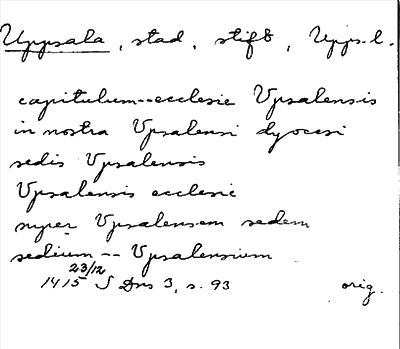 Uppsala, stad, stift, Upps. l.
capitulum--ecclesie Vpsalensis
in nostra Vpsalensi dyocesi
sedis Vpsalensis
Vpsalensis ecclesie
super Vpsalensem sedem
sedium -- Vpsalensium
1415 23/12 S Dns 3, s. 93 orig.